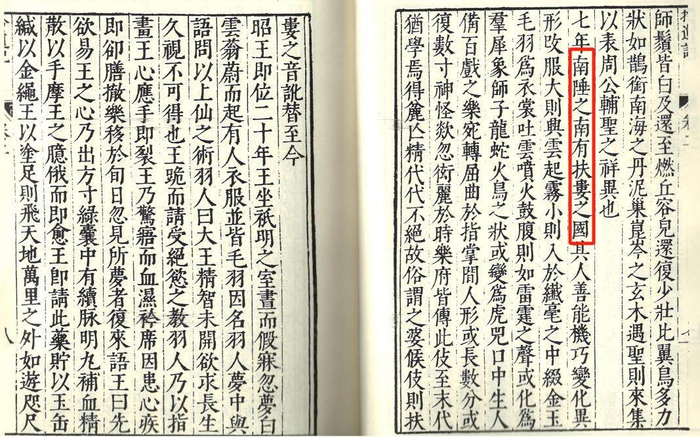 師鬚皆白及還至燃丘容皃還復少壯比翼鳥多力
狀如鵲銜南海之丹泥巢崑岑之玄木遇聖則來集
以表周公輔聖之祥異也
七年南陲之南有扶婁之國其人善能機巧變化異
形改服大則興雲起霧小則入於纖毫之中綴金玉
毛羽為衣裳吐雲噴火鼓腹則如雷霆之聲或化為
羣犀象師子龍蛇火鳥之狀或變為虎兕口中生人
備百戲之樂宛轉屈曲於指掌間人形或長數分或
復數寸神怪欻忽衒麗於時樂府皆傳此伎至末代
猶學焉得麄亾精代代不絕故俗謂之婆候伎則扶
婁之音訛替至今
昭王即位二十年王坐祇明之室晝而假寐忽夢白
雲蓊蔚而起有人衣服並皆毛羽因名羽人夢中與
語問以上仙之術羽人曰大王精智未開欲求長生
久視不可得也王跪而請受絕欲之教羽人乃以指
畫王心應手即裂王乃驚寤而血濕衿席因患心疾
即卻膳撤樂移於旬日忽見所夢者復來語王曰先
欲易王之心乃出方寸綠囊中有續脉明丸補血精
散以手摩王之臆俄而即愈王即請此藥貯以玉缶
緘以金繩王以塗足則飛天地萬里之外如遊咫尺
八